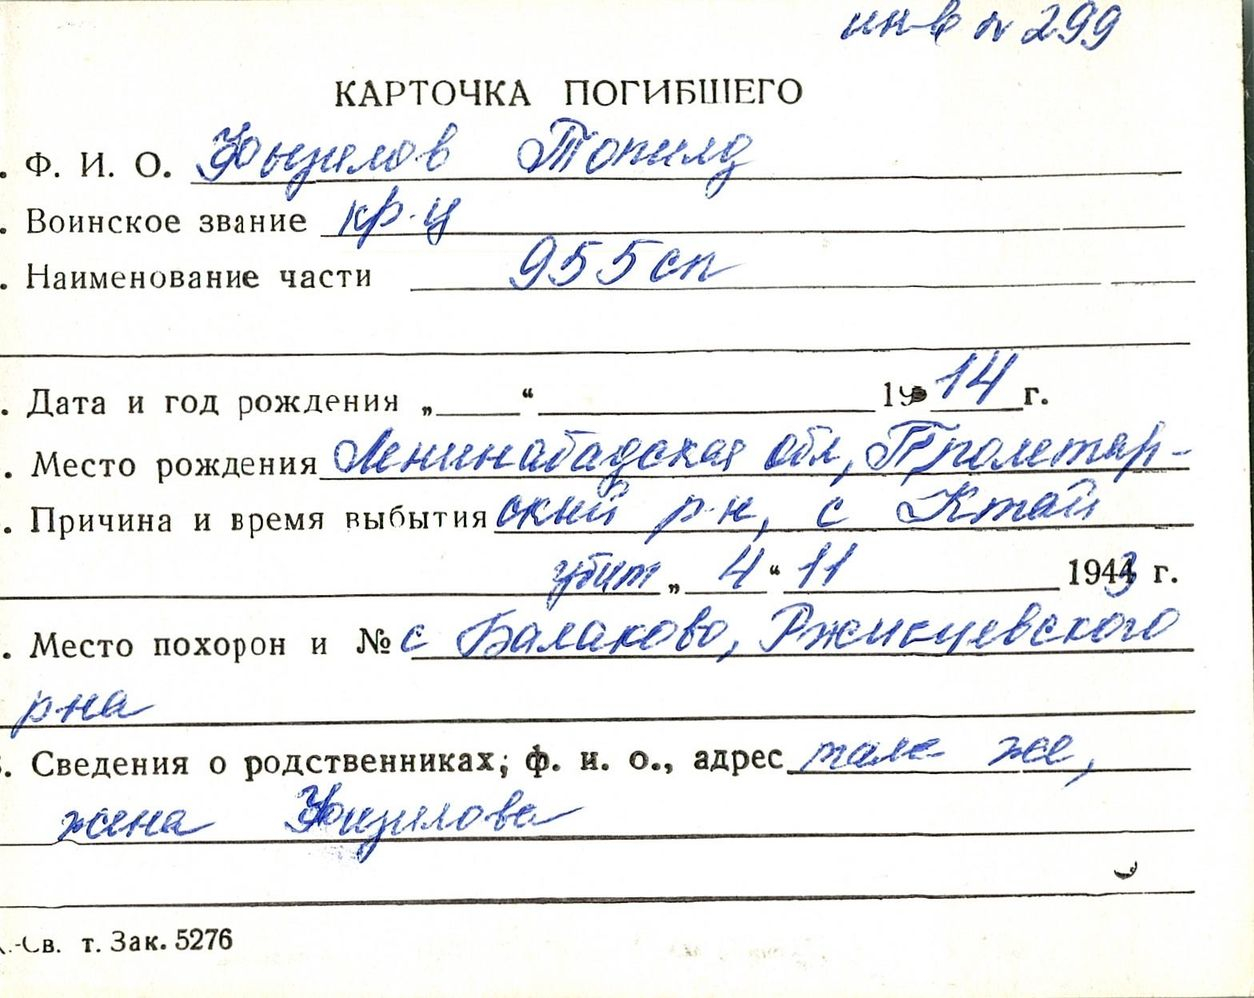 инв № 299
КАРТОЧКА ПОГИБШЕГО
. Ф. И. О. Топилд
. Воинское звание кр-ц
. Наименование части 955 сп
. Дата и год рождения „ “ 19 14 г.
. Место рождения Ленинабадская обл, Пролетар-
. Причина и время выбытия ский р-н, с Ктай
убит „ 4 “ 11 1943 г.
. Место похорон и № с Балаково, Ржищевского
р-на
. Сведения о родственниках; ф. и. о., адрес там же,
жена
.-Св. т. Зак. 5276